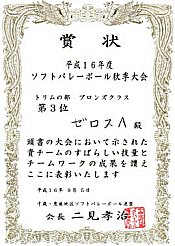 賞状
平成16年度
ソフトバレーボール秋季大会
トリムの部 ブロンズクラス
第3位
ゼロスA 殿
頭書の大会において示された
貴チームのすばらしい技量と
チームワークの成果を讃え
ここに表彰いたします
平成16年9月5日
千歳・恵庭地区ソフトバレーボール連盟
会長 二見孝治